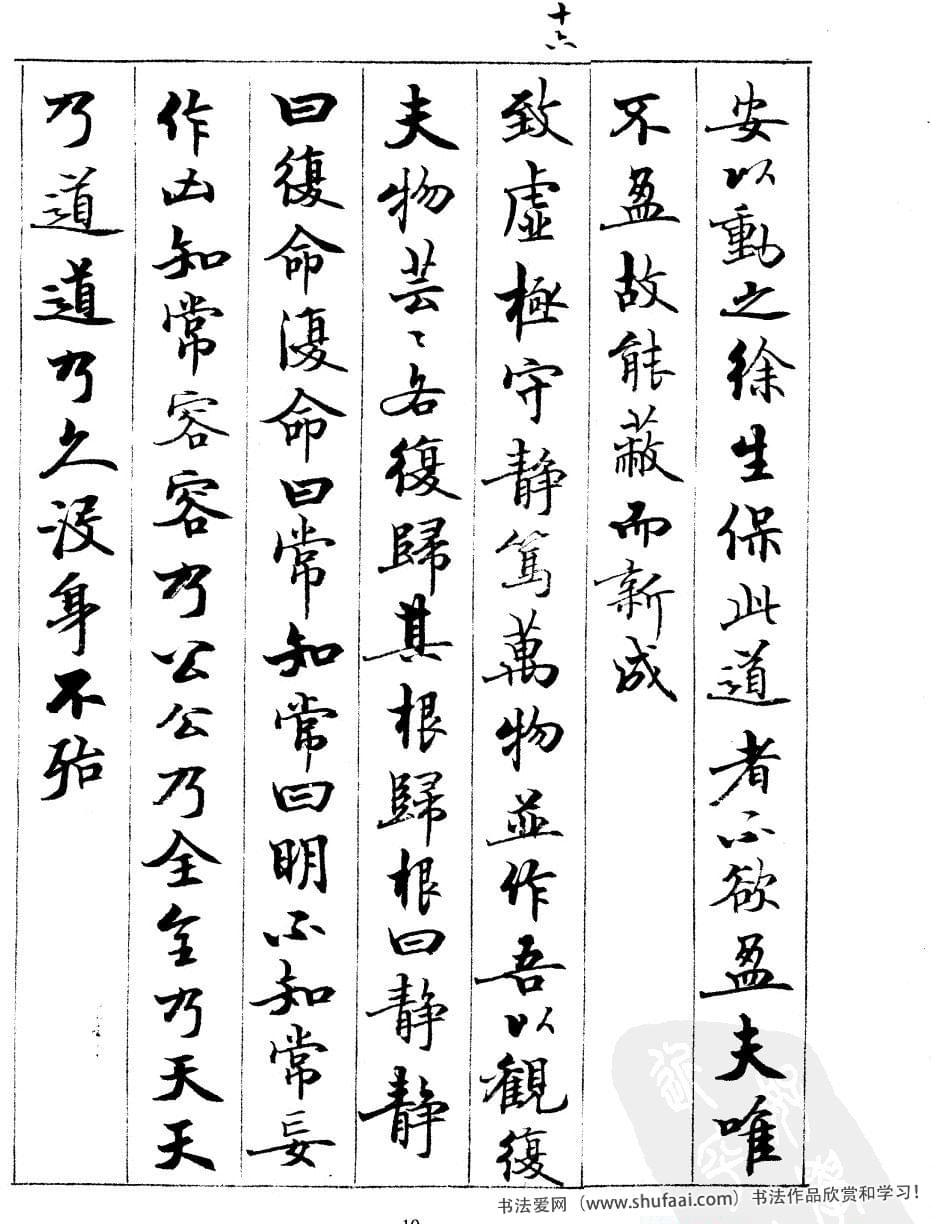 十六
安以動之徐生保此道者不欲盈夫唯
不盈故能蔽而新成
致虛極守静篤萬物並作吾以觀復
夫物芸〻各復歸其根歸根曰静静
曰復命復命曰常知常曰明不知常妄
作凶知常容容乃公公乃全全乃天天
乃道道乃久没身不殆
书法爱网（www.shufaai.com）书法作品欣赏和学习！